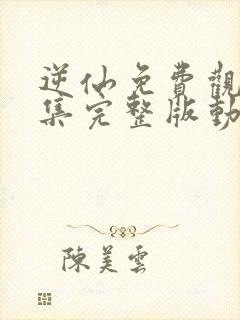 逆仙免費觀
集完整版動
陳美雲